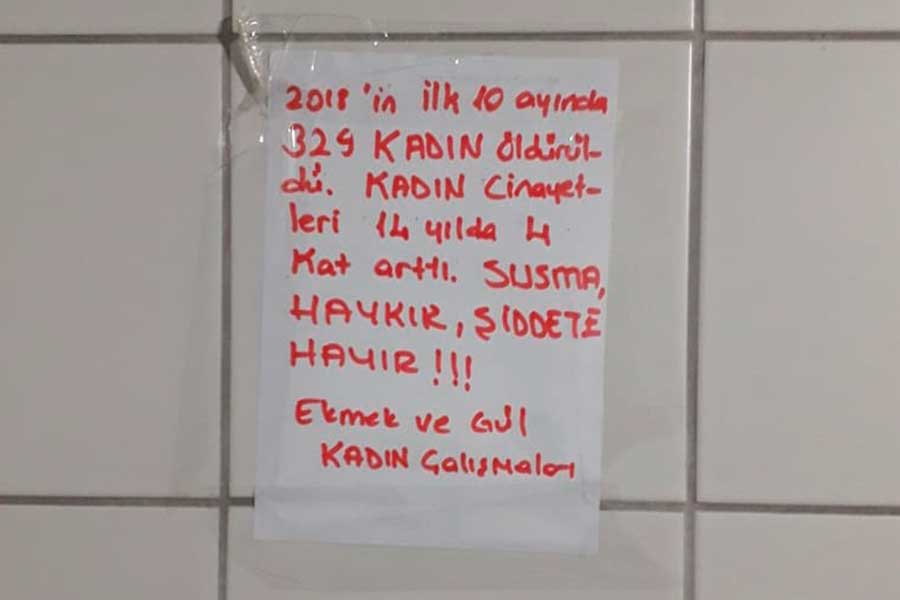 2018'in ilk 10 ayında
329 KADIN öldürül-
dü. KADIN Cinayet-
leri 14 yılda 4
Kat arttı. SUSMA,
HAYKIR, ŞİDDETE
HAYIR!!!
Ekmek ve Gül
KADIN Çalışmaları